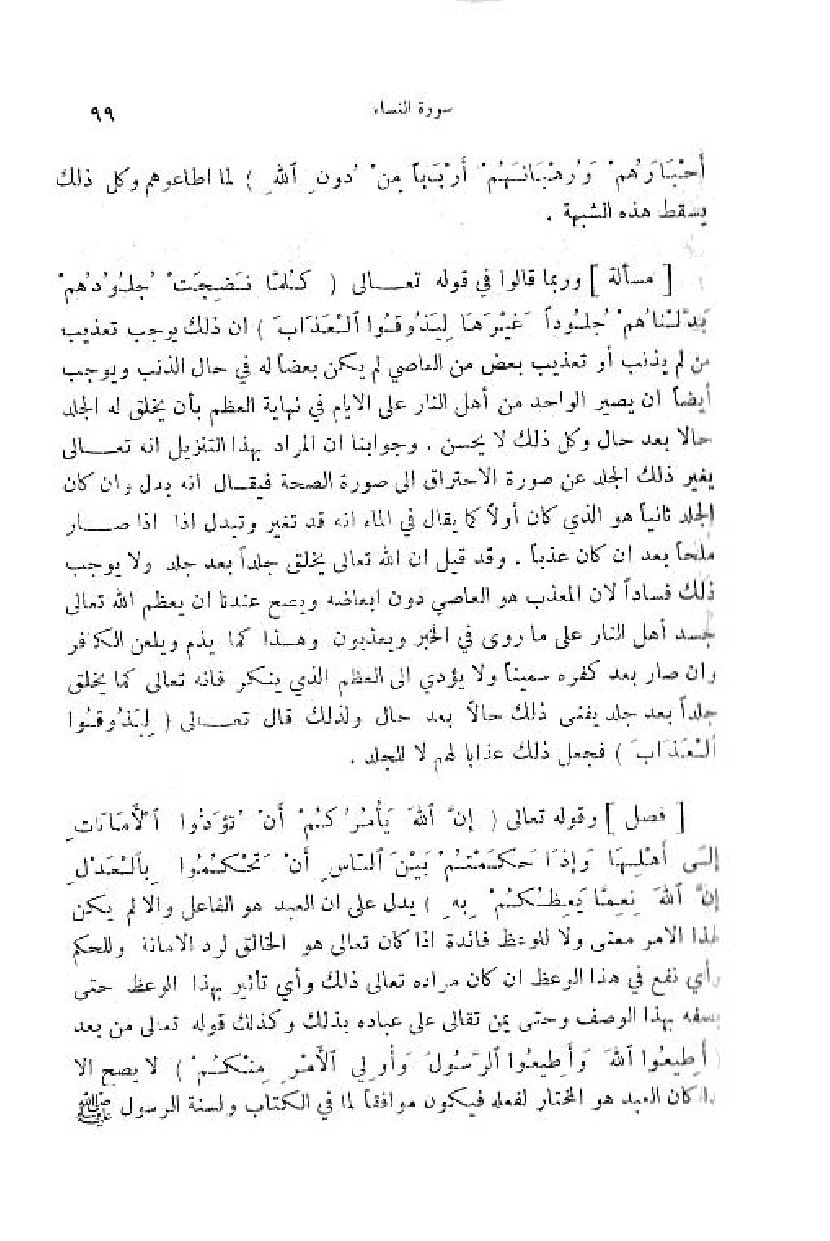 سورة النساء ٩٩
أَحْبَارَهُمْ وَرُهْبَانَهُمْ أَرْبَاباً مِنْ دُونِ اللهِ ) لما اطاعوهم وكل ذلك
يسقط هذه الشبهة .
[ مسألة ] وربما قالوا في قوله تعـالى ( كُلَّمَا نَضِجَتْ جُلُودُهُمْ
بَدَّلْنَاهُمْ جُلُوداً غَيْرَهَا لِيَذُوقُوا الْعَذَابَ ) ان ذلك يوجب تعذيب
من لم يذنب أو تعذيب بعض من العاصي لم يكن بعضاً له في حال الذنب ويوجب
أيضاً ان يصير الواحد من أهل النار على الايام في نهاية العظم بأن يخلق له الجلد
حالا بعد حال وكل ذلك لا يحسن . وجوابنا ان المراد بهذا التنزيل انه تعـالى
يغير ذلك الجلد عن صورة الاحتراق الى صورة الصحة فيقـال انه بدل وان كان
الجلد ثانياً هو الذي كان أولاً كما يقال في الماء انه قد تغير وتبدل اذا اذا صـار
ملحاً بعد ان كان عذباً . وقد قيل ان الله تعالى يخلق جلداً بعد جلد ولا يوجب
ذلك فساداً لان المعذب هو العاصي دون ابعاضه ويصح عندنا ان يعظم الله تعالى
جسد أهل النار على ما روى في الخبر ويعذبون وهـذا كما يذم ويلعن الكافر
وان صار بعد كفره سميناً ولا يؤدي الى العظم الذي ينكر فانه تعالى كما يخلق
جلداً بعد جلد يفنى ذلك حالاً بعد حال ولذلك قال تعـالى ( لِيَذُوقُوا
الْعَذَابَ ) فجعل ذلك عذابا لهم لا للجلد .
[ فصل ] وقوله تعالى ( إِنَّ اللهَ يَأْمُرُكُمْ أَنْ تُؤَدُّوا الْأَمَانَاتِ
إِلَى أَهْلِهَا وَإِذَا حَكَمْتُمْ بَيْنَ النَّاسِ أَنْ تَحْكُمُوا بِالْعَدْلِ
إِنَّ اللهَ نِعِمَّا يَعِظُكُمْ بِهِ ) يدل على ان العبد هو الفاعل والا لم يكن
لهذا الامر معنى ولا للوعظ فائدة اذا كان تعالى هو الخالق لرد الامانة وللحكم
وأي نفع في هذا الوعظ ان كان مراده تعالى ذلك وأي تأثير بهذا الوعظ حتى
يصفه بهذا الوصف وحتى يمن تعالى على عباده بذلك وكذلك قوله تعالى من بعد
( أَطِيعُوا اللهَ وَأَطِيعُوا الرَّسُولَ وَأُولِي الْأَمْرِ مِنْكُمْ ) لا يصح الا
اذا كان العبد هو المختار لفعله فيكون موافقاً لما في الكتاب ولسنة الرسول ﷺ